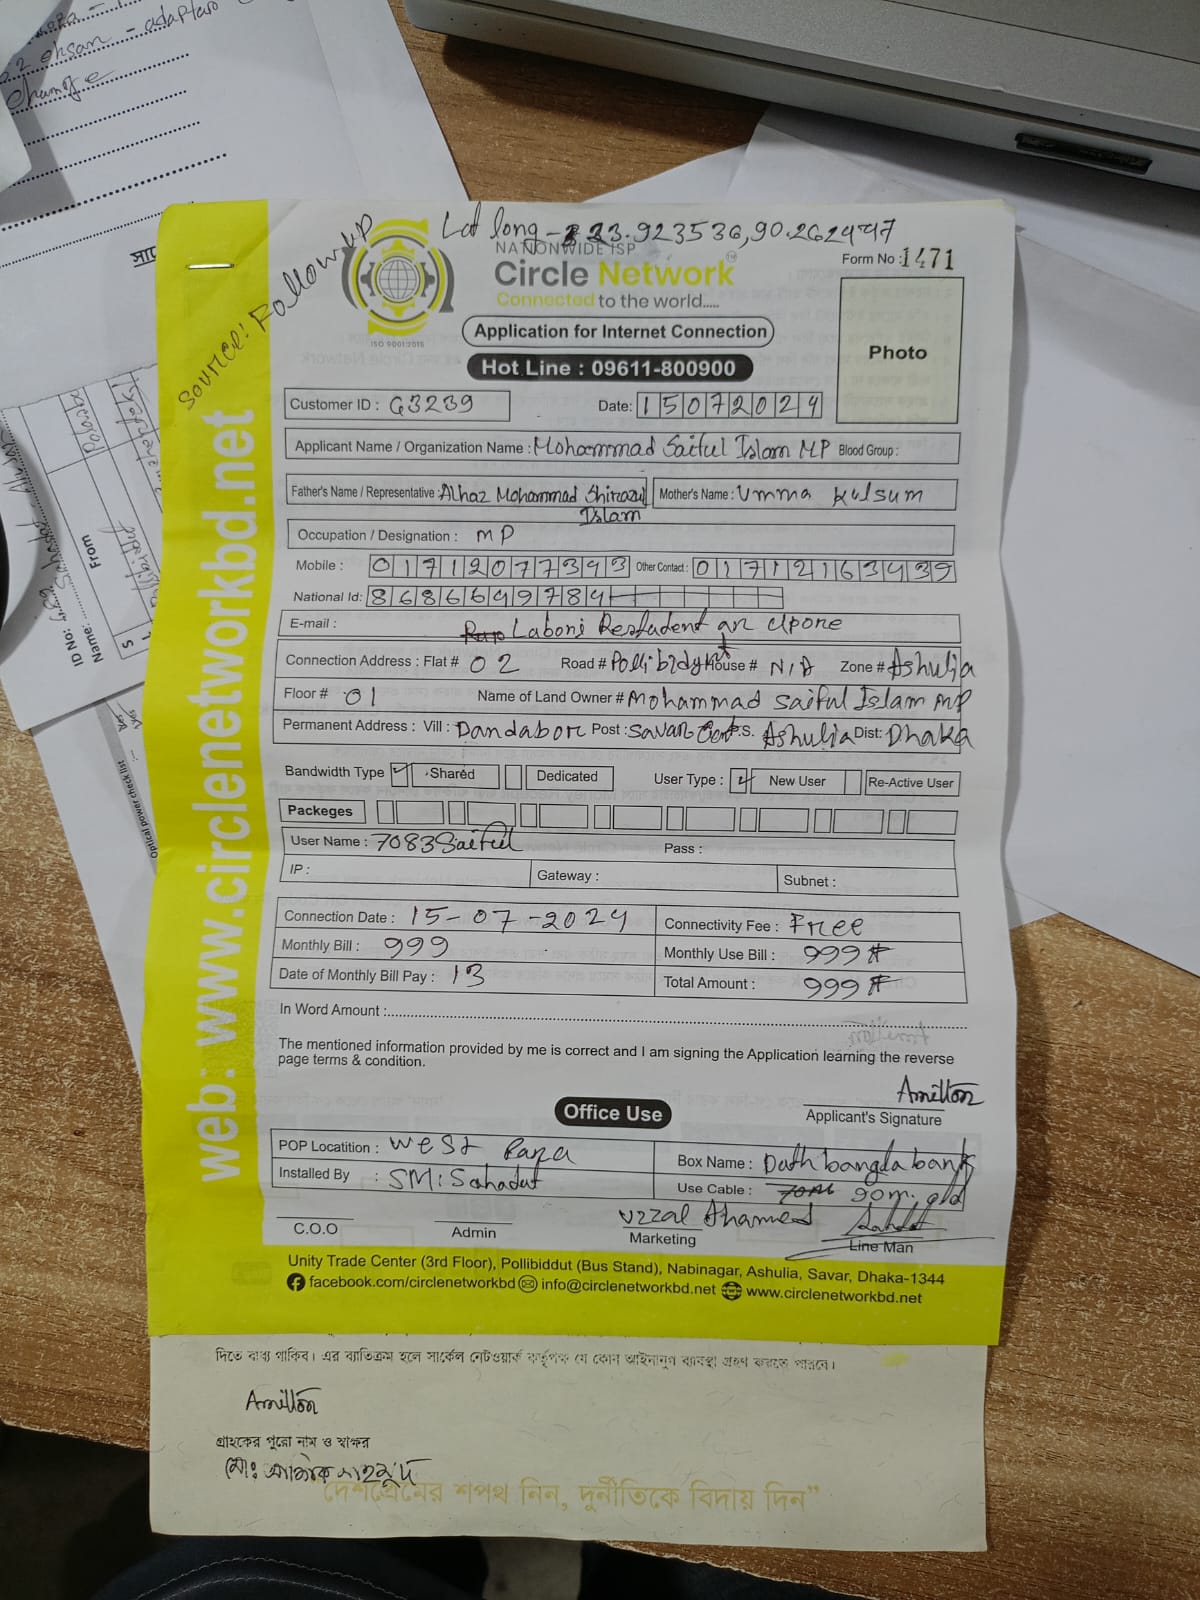 2 ehsan - adaptar
change
Source: Follow up
Lat long - 23.923536, 90.262497
NATIONWIDE ISP
Circle Network
Connected to the world.....
ISO 9001:2015
Form No : 1471
Photo
Application for Internet Connection
Hot Line : 09611-800900
Customer ID : G3239
Date: 15072024
Applicant Name / Organization Name : Mohammad Saiful Islam MP Blood Group :
Father's Name / Representative : Alhaz Mohammad Shirazul Islam Mother's Name : Umma kulsum
Occupation / Designation : MP
Mobile : 01712077393 Other Contact : 01712163439
National Id: 8686649784
E-mail : Laboni Restudent ar Upore
Connection Address : Flat # 02 Road # Pollibidyut House # N/A Zone # Ashulia
Floor # 01 Name of Land Owner # Mohammad Saiful Islam MP
Permanent Address : Vill : Dandabor Post : Savar Cant P.S. Ashulia Dist: Dhaka
Bandwidth Type Shared Dedicated User Type : New User Re-Active User
Packeges
User Name : 7083Saiful Pass :
IP : Gateway : Subnet :
Connection Date : 15-07-2024 Connectivity Fee : Free
Monthly Bill : 999 Monthly Use Bill : 999
Date of Monthly Bill Pay : 13 Total Amount : 999
In Word Amount :
The mentioned information provided by me is correct and I am signing the Application learning the reverse
page terms & condition.
Applicant's Signature
Office Use
POP Locatition : West Para Box Name : Duthbangla bank
Installed By : SM: Sahadat Use Cable : 90m. old
C.O.O Admin Uzzal Ahamed Marketing Line Man
Unity Trade Center (3rd Floor), Pollibiddut (Bus Stand), Nabinagar, Ashulia, Savar, Dhaka-1344
facebook.com/circlenetworkbd info@circlenetworkbd.net www.circlenetworkbd.net
web: www.circlenetworkbd.net
দিতে বাধ্য থাকিব। এর ব্যতিক্রম হলে সার্কেল নেটওয়ার্ক কর্তৃপক্ষ যে কোন আইনানুগ ব্যবস্থা গ্রহণ করতে পারবে।
গ্রাহকের পুরো নাম ও স্বাক্ষর
"দেশপ্রেমের শপথ নিন, দুর্নীতিকে বিদায় দিন"
ID No:
Name:
From
Optical power check list